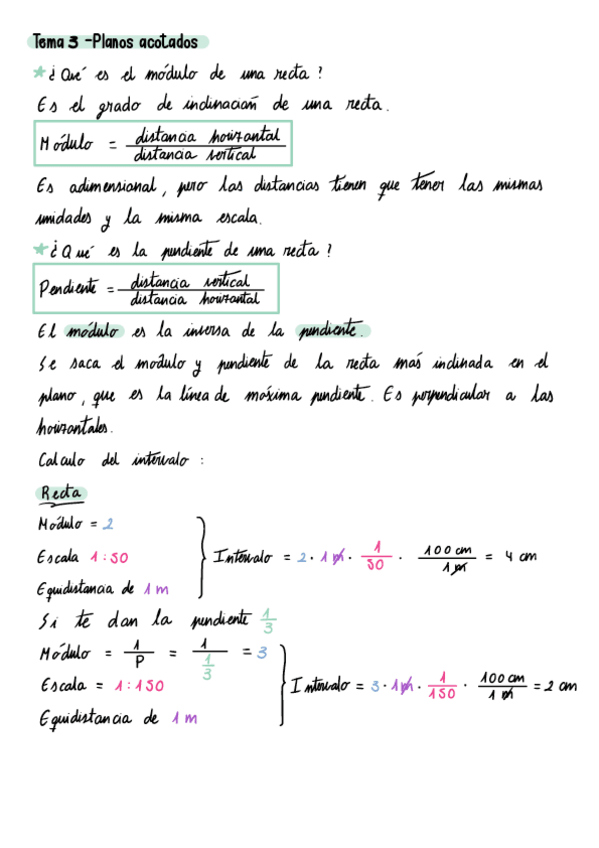 Tema 3 - Planos acotados
* ¿Qué es el módulo de una recta?
Es el grado de inclinación de una recta.
Módulo = distancia horizontal / distancia vertical
Es adimensional, pero las distancias tienen que tener las mismas
unidades y la misma escala.
* ¿Qué es la pendiente de una recta?
Pendiente = distancia vertical / distancia horizontal
El módulo es la inversa de la pendiente.
Se saca el modulo y pendiente de la recta más inclinada en el
plano, que es la línea de máxima pendiente. Es perpendicular a las
horizontales.
Calculo del intervalo:
Recta
Módulo = 2
Escala 1:50
Equidistancia de 1 m
Intervalo = 2 · 1 m · 1/50 · 100 cm / 1 m = 4 cm
Si te dan la pendiente 1/3
Módulo = 1/P = 1/(1/3) = 3
Escala = 1:150
Equidistancia de 1 m
Intervalo = 3 · 1 m · 1/150 · 100 cm / 1 m = 2 cm